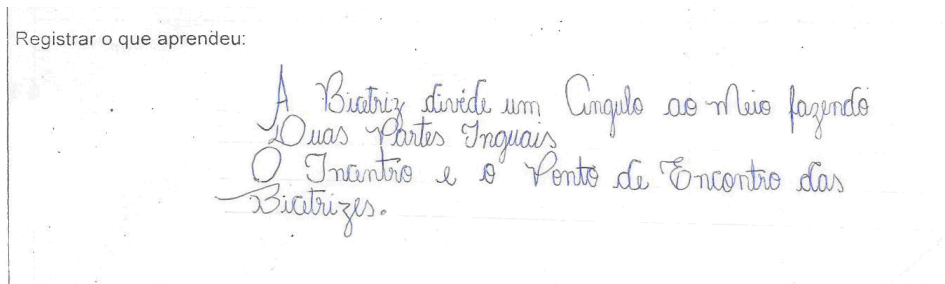 Registrar o que aprendeu:
A Bicetriz divide um Ângulo ao Meio fazendo
Duas Partes Inguais
O Incentro e o Ponto de Encontro das
Bicetrizes.